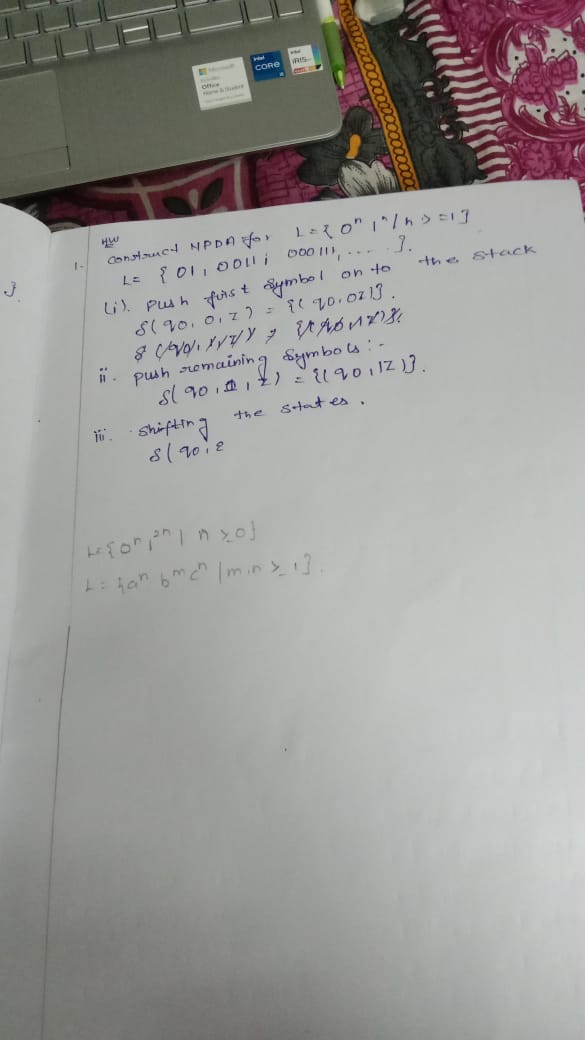 Microsoft
Office
Home & Student
intel
CORE
intel
IRIS
}
HW
1. construct NPDA for L={0ⁿ1ⁿ/n>=1}
L= {01, 0011; 000111, .... }.
(i). Push first symbol on to the stack
δ(q0,0,z) = {(q0,0z)}.
ii. push remaining symbols:-
δ(q0,1,z) = {(q0,1z)}.
iii. shifting the states.
δ(q0,ε
L={0ⁿ1²ⁿ | n≥0}
L= {aⁿ bᵐcⁿ |m,n≥1}.